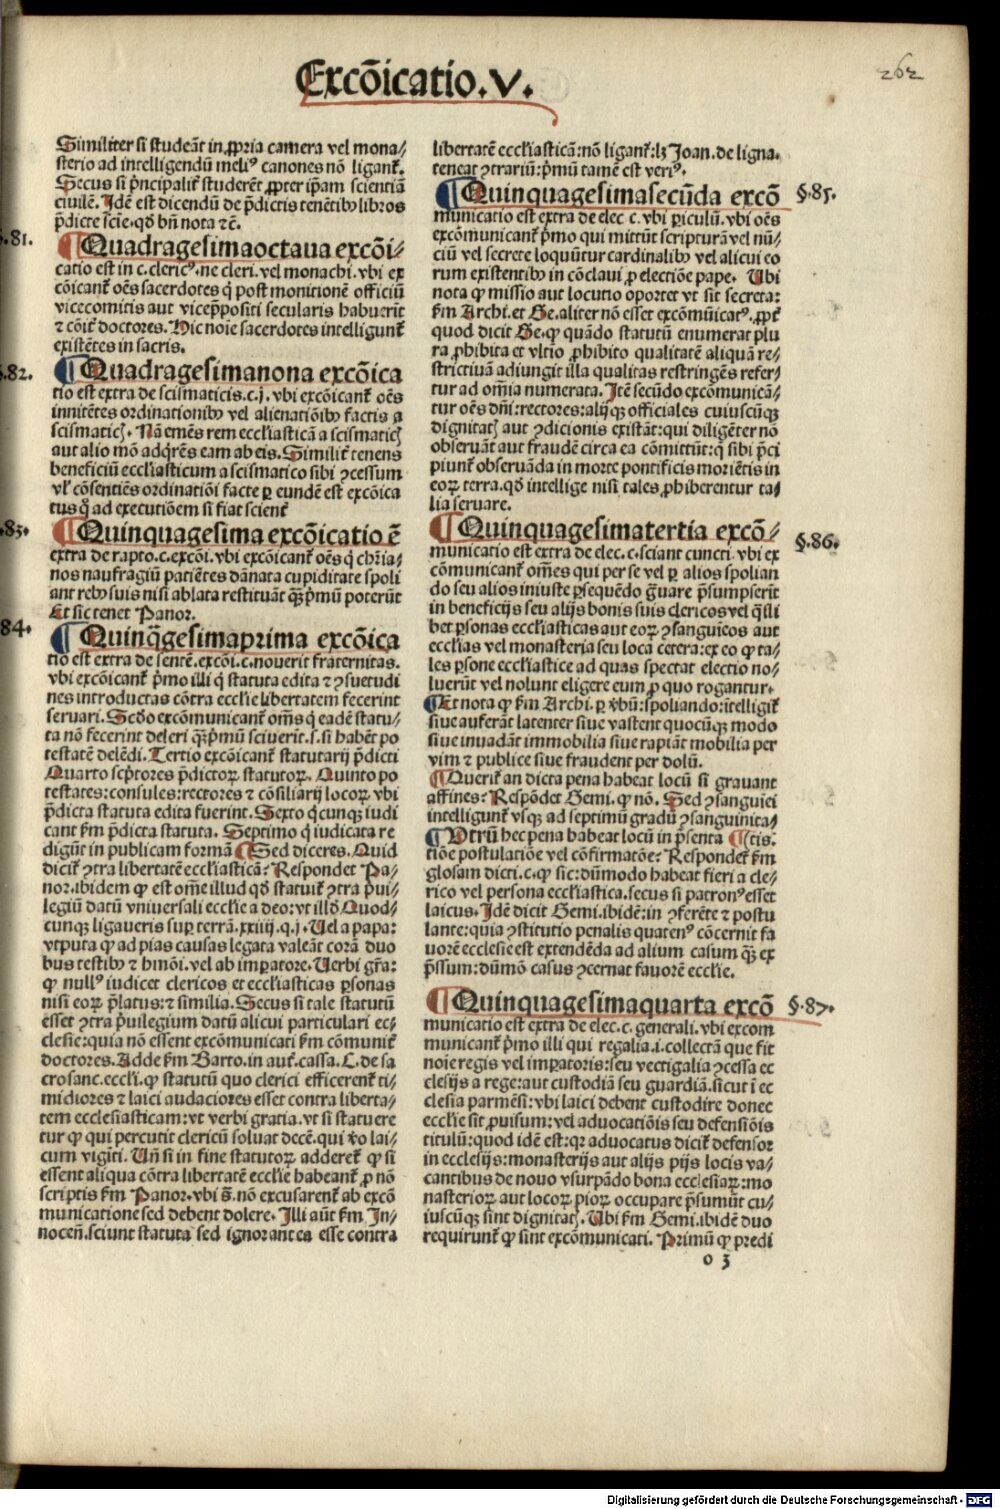 Excōicatio.V.
262
Similiter si studeāt in ꝓpria camera vel mona⸗
sterio ad intelligendū meliꝰ canones nō ligant᷑.
Secus si p̄ncipalit᷑ studerēt ꝓpter ip̄am scientiā
ciuilē. Idē est dicendū de p̄dictis tenētibꝫ libros
p̄dicte scīe. qd̓ bn̄ nota ⁊c̄.
§.81.
¶ Quadragesimaoctaua excōi⸗
catio est in c. clericꝰ. ne cleri. vel monachi. vbi ex
cōicant᷑ oēs sacerdotes q̄ post monitionē officiū
vicecomitis aut vicep̄positi secularis habuerit
⁊ cōit᷑ doctores. Hic noīe sacerdotes intelligunt᷑
existētes in sacris.
§.82.
¶ Quadragesimanona excōica
tio est extra de scismaticis. c.j. vbi excōicant᷑ oēs
innitētes ordinationibꝫ vel alienatiōibꝫ factis a
scismaticꝭ. Nā emēs rem eccl̓iasticā a scismaticꝭ
aut alio mō adq̄rēs eam ab eis. Similit᷑ tenens
beneficiū eccl̓iasticum a scismatico sibi ꝯcessum
vl̓ cōsentiēs ordinatiōi facte ꝑ eundē est excōica
tus q̊ ad executiōem si fiat scient᷑
§.83.
¶ Quinquagesima excōicatio ē
extra de rapto. c. excōi. vbi excōicant᷑ oēs q̄ chr̄ia⸗
nos naufragiū patiētes dānata cupiditate spoli
ant rebꝫ suis nisi ablata restituāt q̄ꝫ p̄mū poterūt
Et sic tenet Panor.
84.
¶ Quinq̄gesimaprima excōica
tio est extra de sentē. excōi. c. nouerit fraternitas.
vbi excōicant᷑ p̄mo illi q̄ statuta edita ⁊ ꝯsuetudi
nes introductas cōtra eccl̓ie libertatem fecerint
seruari. Scd̓o excōmunicant᷑ om̄s q̄ eadē statu⸗
ta nō fecerint deleri q̄ꝫ p̄mū sciuerīt. s. si habēt po
testatē delēdi. Tertio excōicant᷑ statutarij p̄dicti
Quarto scp̄tores p̄dictoꝝ statutoꝝ. Quinto po
testates: consules: rectores ⁊ cōsiliarij locoꝝ vbi
p̄dicta statuta edita fuerint. Sexto q̄cunqꝫ iudi
cant fm̄ p̄dicta statuta. Septimo q̄ iudicata re
digūt in publicam formā ¶ Sed diceres. Quid
dicit᷑ ꝯtra libertatē eccl̓iasticā? Respondet Pa⸗
nor. ibidem ꝙ est om̄e illud qd̓ statuit᷑ ꝯtra p̄ui⸗
legiū datū vniuersali eccl̓ie a deo: vt illd̓ Quod⸗
cunqꝫ ligaueris suꝑ terrā. xxiiij. q.j. Vel a papa:
vtputa ꝙ ad pias causas legata valeāt corā duo
bus testibꝫ ⁊ hmōi. vel ab imꝑatore. Verbi gr̄a:
ꝙ nullꝰ iudicet clericos et eccl̓iasticas ꝑsonas
nisi eoꝝ p̄latus: ⁊ similia. Secus si tale statutū
esset ꝯtra p̄uilegium datū alicui particulari ec⸗
clesie: quia nō essent excōmunicati fm̄ cōmunit᷑
doctores. Adde fm̄ Barto. in aut᷑. cassa. C. de sa
crosanc. eccl̓i. ꝙ statutū quo clerici efficerent᷑ ti⸗
midiores ⁊ laici audaciores esset contra liberta⸗
tem ecclesiasticam: vt verbi gratia. vt si statuere
tur ꝙ qui percutit clericū soluat decē. qui v̄o lai⸗
cum viginti. Un̄ si in fine statutoꝝ adderet᷑ ꝙ si
essent aliqua cōtra libertatē eccl̓ie habeant᷑ ꝓ nō
scriptis fm̄ Panor. vbi s̄. nō excusarent᷑ ab excō
municatione sed debent dolere. Illi aūt fm̄ In⸗
nocen̄. sciunt statuta sed ignorantes esse contra
libertatē eccl̓iasticā: nō ligant᷑: lꝫ Joan. de ligna.
teneat ꝯtrariū: p̄mū tamē est veriꝰ.
§.85.
¶ Quinquagesimasecūda excō
municatio est extra de elec. c. vbi ꝑiculū. vbi oēs
excōmunicant᷑ p̄mo qui mittūt scripturā vel nū⸗
ciū vel secrete loquūtur cardinalibꝫ vel alicui eo
rum existentibꝫ in cōclaui ꝓ electiōe pape. Ubi
nota ꝙ missio aut locutio oportet vt sit secreta:
fm̄ Archi. et Ge. aliter nō esset excōmūicatꝰ. ꝓpt᷑
quod dicit Ge. ꝙ quādo statutū enumerat plu
ra ꝓhibita et vltio ꝓhibito qualitatē aliquā re⸗
strictiuā adiungit illa qualitas restringēs refer⸗
tur ad om̄ia numerata. Itē secūdo excōmunicā⸗
tur oēs dn̄i: rectores: alijqꝫ officiales cuiuscūqꝫ
dignitatꝭ aut ꝯdicionis existāt: qui diligēter nō
obseruāt aut fraudē circa ea cōmittūt: q̄ sibi p̄ci
piunt᷑ obseruāda in morte pontificis moriētis in
eoꝝ terra. qd̓ intellige nisi tales ꝓhiberentur ta⸗
lia seruare.
§.86.
¶ Quinquagesimatertia excō⸗
municatio est extra de elec. c. sciant cuncti. vbi ex
cōmunicant᷑ om̄es qui per se vel ꝑ alios spolian
do seu alios iniuste ꝑsequēdo g̓uare p̄sumpserīt
in beneficijs seu alijs bonis suis clericos vel q̄sli
bet ꝑsonas eccl̓iasticas aut eoꝝ ꝯsanguīeos aut
eccl̓ias vel monasteria seu loca cetera: ex eo ꝙ ta⸗
les ꝑsone eccl̓iastice ad quas spectat electio no⸗
luerūt vel nolunt eligere eum ꝓ quo rogantur.
¶ Et nota ꝙ fm̄ Archi. ꝑ v̄bū: spoliando: ītelligit᷑
siue auferāt latenter siue vastent quocūqꝫ modo
siue inuadāt immobilia siue rapiāt mobilia per
vim ⁊ publice siue fraudent per dolū.
¶ Querit᷑ an dicta pena habeat locū si grauant
affines? Respōdet Gemi. ꝙ nō. Sed ꝯsanguiei
intelligunt᷑ vsqꝫ ad septimū gradū ꝯsanguinita⸗
¶ Utrū hec pena habeat locū in p̄senta ¶ (tis.
tiōe postulatiōe vel cōfirmatōe? Respondet᷑ fm̄
glosam dicti. c. ꝙ sic: dūmodo habeat fieri a cle⸗
rico vel persona eccl̓iastica. secus si patronꝰ esset
laicus. Idē dicit Gemi. ibidē: in ꝯferēte ⁊ postu
lante: quia ꝯstitutio penalis quatenꝰ cōcernit fa
uorē ecclesie est extendēda ad alium casum q̄ꝫ ex
p̄ssum: dūmō casus ꝯcernat fauorē eccl̓ie.
§.87.
¶ Quinquagesimaquarta excō
municatio est extra de elec. c. generali. vbi excom
municant᷑ p̄mo illi qui regalia. i. collectā que fit
noīe regis vel imꝑatoris: seu vectigalia ꝯcessa ec
clesijs a rege: aut custodiā seu guardiā. sicut ī ec
clesia parmēsi: vbi laici debent custodire donec
eccl̓ie sit ꝓuisum: vel aduocatiōis seu defensiōis
titulū: quod idē est: qꝛ aduocatus dicit᷑ defensor
in ecclesijs: monasterijs aut alijs pijs locis va⸗
cantibus de nouo vsurpādo bona ecclesiaꝝ: mo
nasterioꝝ aut locoꝝ pioꝝ occupare p̄sumūt cu⸗
iuscūqꝫ sint dignitatꝭ. Ubi fm̄ Gemi. ibidē duo
requirunt᷑ ꝙ sint excōmunicati. Primū ꝙ predi
o 3
Digitalisierung gefördert durch die Deutsche Forschungsgemeinschaft - DFG